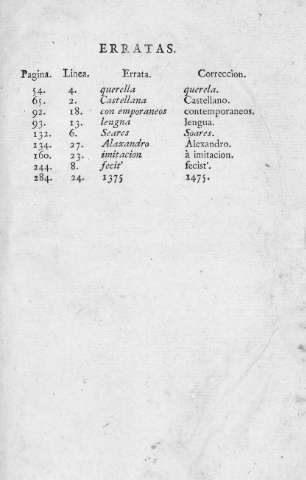 ERRATAS.
Pagina. Linea. Errata. Correccion.
54. 4. querella querela.
65. 2. Castellana Castellano.
92. 18. con emporaneos contemporaneos.
93. 13. lengna lengua.
132. 6. Seares Soares.
134. 27. Alaxandro Alexandro.
160. 23. imitacion à imitacion.
244. 8. fecit' fecist'.
284. 24. 1375 1475.